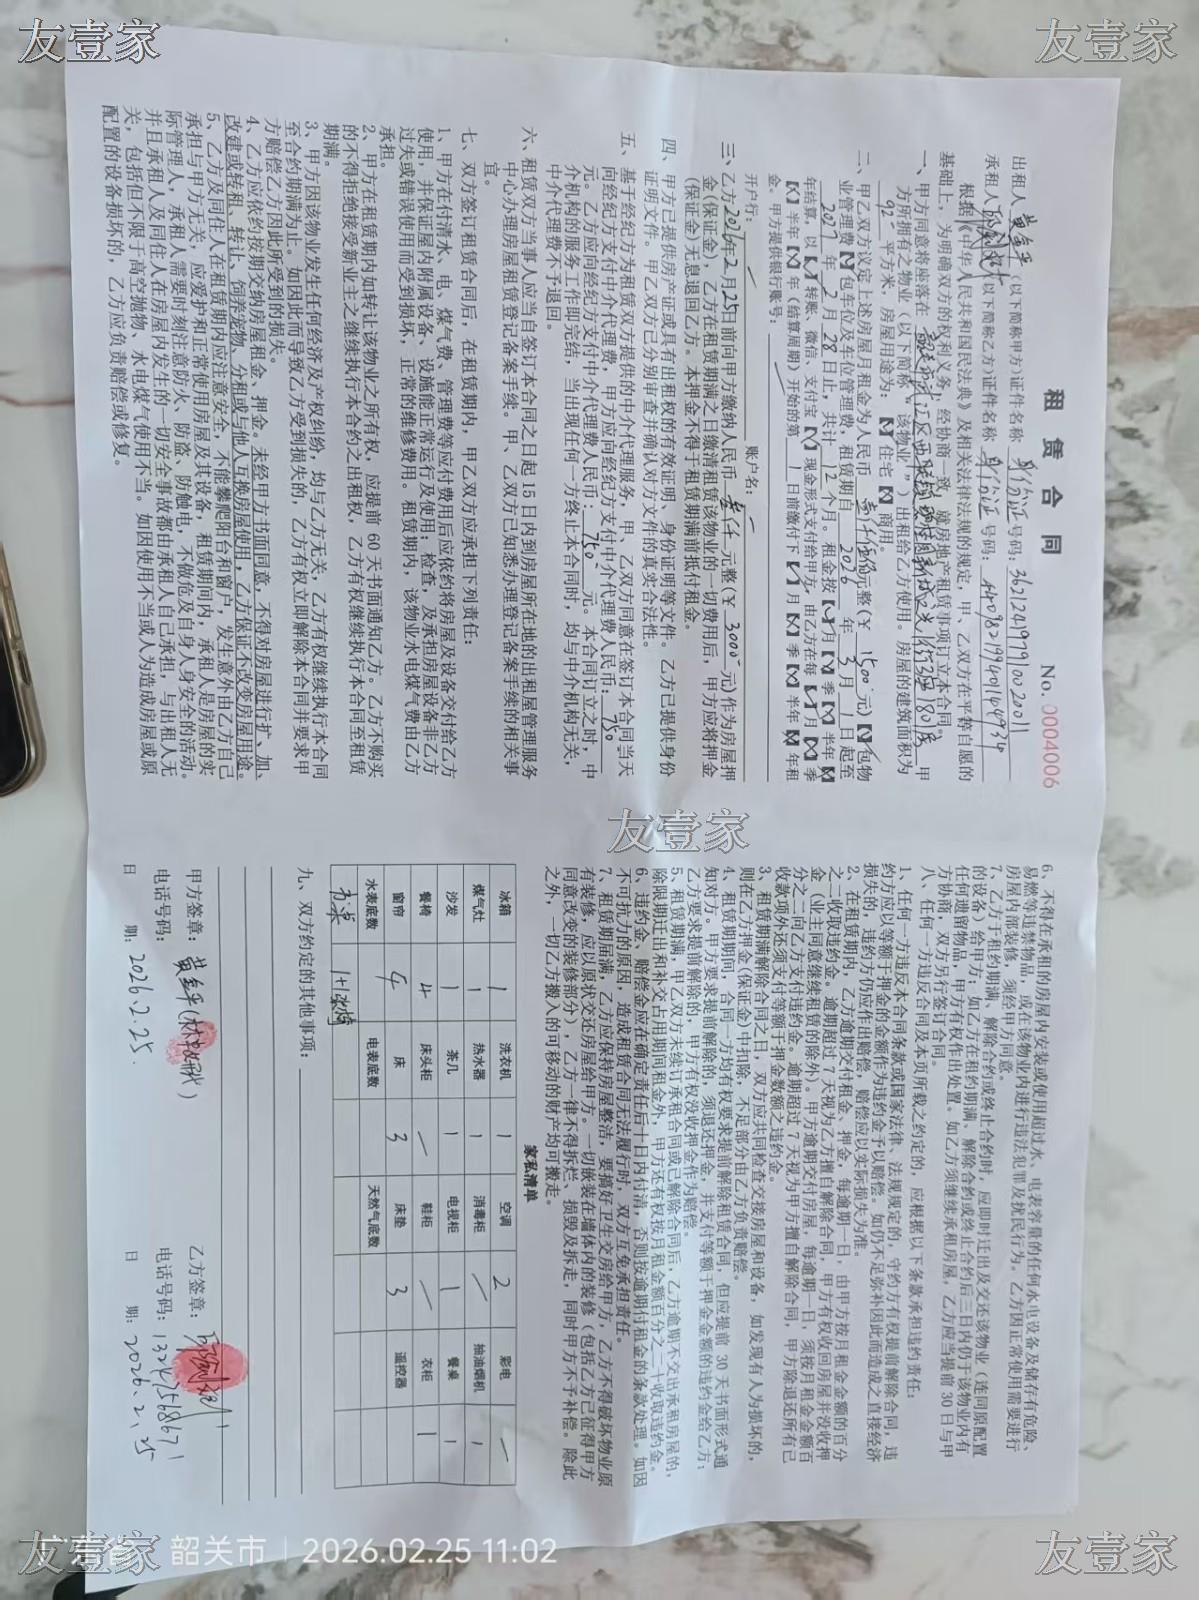 租赁合同 No.0004006
出租人 (以下简称甲方)证件名称 身份证 号码:
承租人 (以下简称乙方)证件名称 身份证 号码:
根据《中华人民共和国民法典》及相关法律法规的规定,甲、乙双方在平等自愿的
基础上,为明确双方的权利义务,经协商一致,就房地产租赁事项订立本合同。
一、甲方同意将座落在 甲
方所拥有之物业(以下简称“该物业”)出租给乙方使用。房屋的建筑面积为
92 平方米,房屋用途为:【】住宅【】商用。
二、甲乙双方议定上述房屋月租金为人民币 元整(¥ 1500 元)【】包物
业管理费【】包车位及车位管理费,租赁期自 2026 年 3 月 1 日起至
2027 年 2 月 28 日止,共计 12 个月。租金按【】月【】季【】半年【】
年结算,以【】转账、微信、支付宝【】现金形式支付给甲方,由乙方在每【】月【】季
【】半年【】年(结算周期)开始的第 1 日前缴付下【】月【】季【】半年【】年租
金。甲方提供银行账号:
开户行: 账户名:
三、乙方 年2月25日前向甲方缴纳人民币 叁仟 元整(¥ 3000 元)作为房屋押
金(保证金),乙方在租赁期满之日缴清租赁该物业的一切费用后,甲方应将押金
(保证金)无息退回乙方。本押金不得于租赁期满前抵付租金。
四、甲方已提供房产证或具有出租权的有效证明、身份证明等文件。乙方已提供身份
证明文件。甲乙双方已分别审查并确认对方文件的真实合法性。
五、基于经纪方为租赁双方提供的中介代理服务,甲、乙双方同意在签订本合同当天
向经纪方支付中介代理费,甲方应向经纪方支付中介代理费人民币: 750
元。乙方应向经纪方支付中介代理费人民币: 750 元。本合同订立之时,中
介机构的服务工作即完结,当出现任何一方终止本合同时,均与中介机构无关,
中介代理费不予退回。
六、租赁双方当事人应当自签订本合同之日起 15 日内到房屋所在地的出租屋管理服务
中心办理房屋租赁登记备案手续。甲、乙双方已知悉办理登记备案手续的相关事
宜。
七、双方签订租赁合同后,在租赁期内,甲乙双方应承担下列责任:
1、甲方在付清水、电、煤气费、管理费等应付费用后应依约将房屋及设备交付给乙方
使用,并保证屋内附属设备、设施能正常运行及使用;检查,及承担房屋设备非乙方
过失或错误使用而受到损坏,正常的维修费用。租赁期内,该物业水电煤气费由乙方
承担。
2、甲方在租赁期内如转让该物业之所有权,应提前 60 天书面通知乙方。乙方不购买
的不得拒绝接受新业主之继续执行本合约之出租权,乙方有权继续执行本合同至租赁
期满。
3、甲方因该物业发生任何经济及产权纠纷,均与乙方无关,乙方有权继续执行本合同
至合约期满为止。如因此而导致乙方受到损失的,乙方有权立即解除本合同并要求甲
方赔偿乙方因此所受到的损失。
4、乙方应依约按期交纳房屋租金、押金。未经甲方书面同意,不得对房屋进行扩、加、
改建或转租、转让、饲养宠物、分租或与他人互换房屋使用,乙方保证不改变房屋用途。
5、乙方及同住人在租赁期内应注意安全,不能攀爬阳台和窗户,发生意外由乙方自己
承担与甲方无关,应爱护和正常使用房屋及其设备,租赁期间内,承租人是房屋的实
际管理人,承租人需要时刻注意防火、防盗、防触电,不做危及自身人身安全的活动。
并且承租人及同住人在房屋内发生的一切安全事故都由承租人自己承担,与出租人无
关,包括但不限于高空抛物、水电煤气使用不当。如因使用不当或人为造成房屋或原
配置的设备损坏的,乙方应负责赔偿或修复。
6、不得在承租的房屋内安装或使用超过水、电表容量的任何水电设备及储存有危险、
易燃等违禁物品,或在该物业内进行违法犯罪及扰民行为。乙方因正常使用需要进行
房屋内部装修,须经甲方同意。
7、乙方于租约期满、解除合约或终止合约时,应即时迁出及交还该物业(连同原配置
的设备)给甲方;如乙方在租约期满、解除合约或终止合约后三日内仍于该物业内有
任何遗留物品,甲方有权作出处置。如乙方须继续承租房屋,乙方应当提前 30 日与甲
方协商,双方另行签订合同。
八、任何一方违反合同及本页所载之约定的,应根据以下条款承担违约责任:
1、任何一方违反本合同条款或国家法律、法规规定的,守约方有权提前解除合同,违
约方应以等额于押金的金额作为违约金予以赔偿。如仍不足弥补因此而造成之直接经济
损失的,违约方仍应作出赔偿,赔偿应以实际损失为准。
2、在租赁期内,乙方逾期交付租金、押金,每逾期一日,由甲方按月租金金额的百分
之二收取违约金。逾期超过 7 天视为乙方擅自解除合同,甲方有权收回房屋并没收押
金(业主同意继续租赁的除外)。甲方逾期交付房屋,每逾期一日,须按月租金金额百
分之二向乙方支付违约金。逾期超过 7 天视为甲方擅自解除合同,甲方除退还所有已
收款项外还须支付等额于押金数额之违约金。
3、租赁期满解除合同之日,双方应共同检查交接房屋和设备,如发现有人为损坏的,
则在乙方押金(保证金)中扣除,不足部分由乙方负责赔偿。
4、租赁期期间,合同一方均有权要求提前解除租赁合同,但应提前 30 天书面形式通
知对方。甲方要求提前解除的,须退还押金,并支付等额于押金金额的违约金给乙方;
乙方要求提前解除的,甲方有权没收押金作为赔偿。
5、租赁期满,甲乙双方未续订承租合同或已解除合同后,乙方逾期不交出承租房屋的,
除限期迁出和补交占用期间租金外,甲方还有权按月租金额百分之二十收取违约金。
6、违约金、赔偿金应在确定责任后十日内付清,否则按逾期付租金的条款处理。如因
不可抗力的原因,造成租赁合同无法履行时,双方互免承担责任。
7、租赁期届满,乙方应保持房屋整洁,要搞好卫生交房给甲方,乙方不得破坏物业原
有装修,应以原状交还房屋给甲方。一切嵌装在墙体内的装修(包括乙方已征得甲方
同意改变的装修部分),乙方一律不得拆烂、损毁及拆走,同时甲方不予补偿。除此
之外,一切乙方搬入的可移动的财产均可搬走。
家私清单
冰箱 1 洗衣机 1 空调 2 彩电 一
煤气灶 1 热水器 1 消毒柜 抽油烟机 1
沙发 1 茶几 1 电视柜 1 餐桌 1
餐椅 4 床头柜 一 鞋柜 一 衣柜 1
窗帘 4 床 3 床垫 3 遥控器
水表底数 电表底数 天然气底数
书桌 1+1
九、双方约定的其他事项:
甲方签章: 乙方签章:
电话号码: 电话号码:
日 期:2026.2.25. 日 期:2026.2.25
友壹家
友壹家
友壹家
友壹家
友壹家
韶关市 | 2026.02.25 11:02